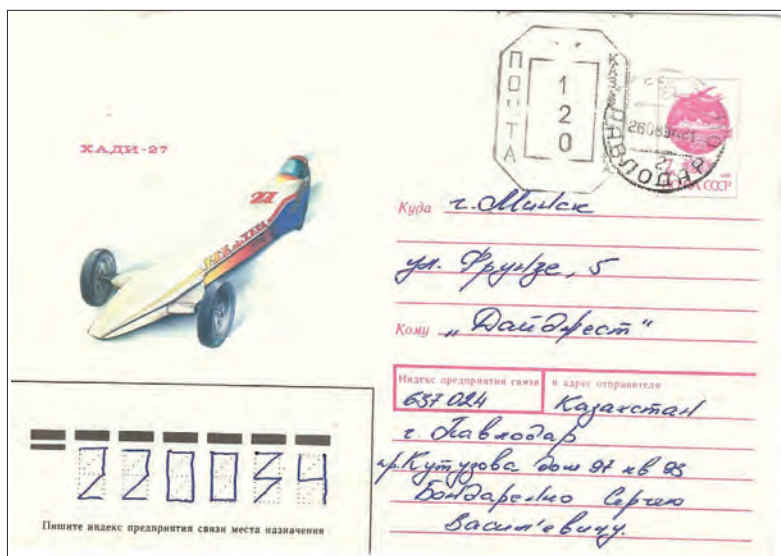 ХАДИ-27
27
ПОЧТА
120
ПАВЛОДАР
ПОЧТА СССР
Куда г. Минск
ул. Фрунзе, 5
Кому „Дайджест"
Индекс предприятия связи и адрес отправителя
637024 Казахстан
г. Павлодар
пр. Кутузова дом 97 кв 93
Бондаренко Сергею
Васильевичу.
220034
Пишите индекс предприятия связи места назначения